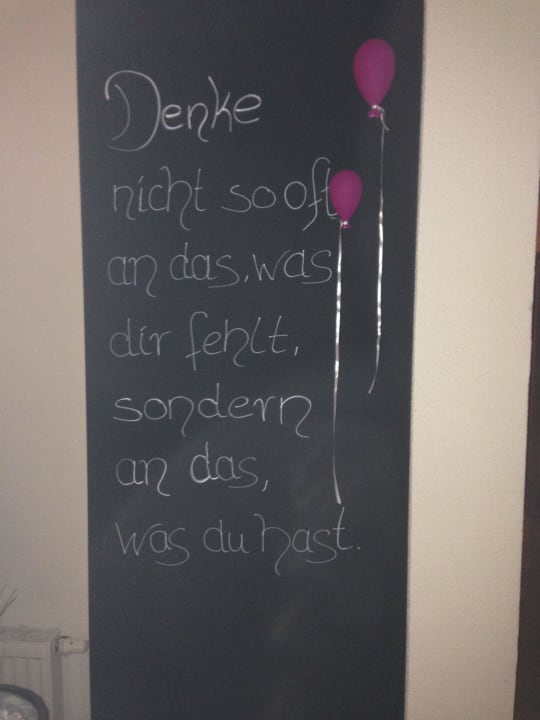 Denke
nicht so oft
an das, was
dir fehlt,
sondern
an das,
was du hast.